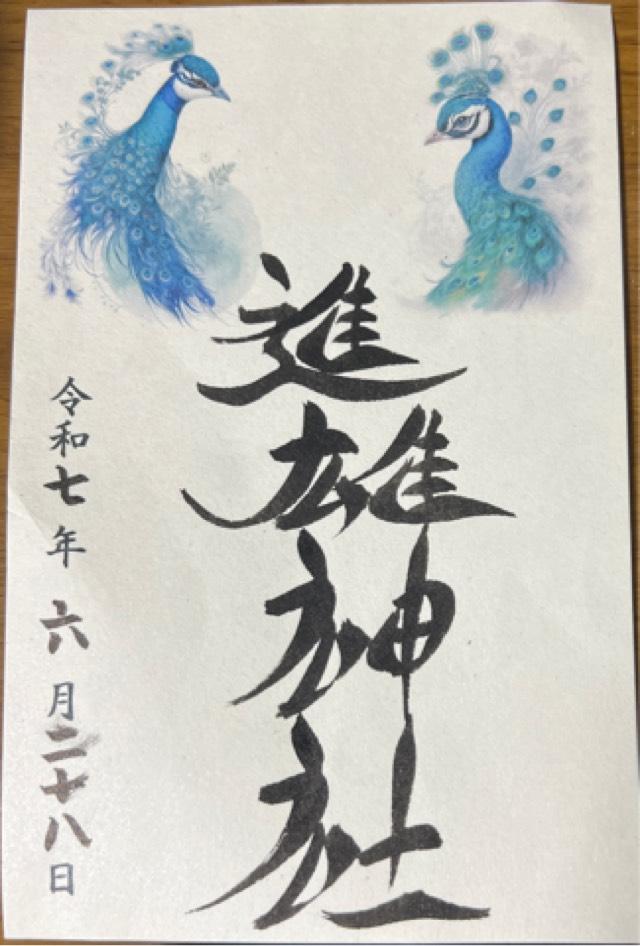 進雄神社
令和七年六月二十八日